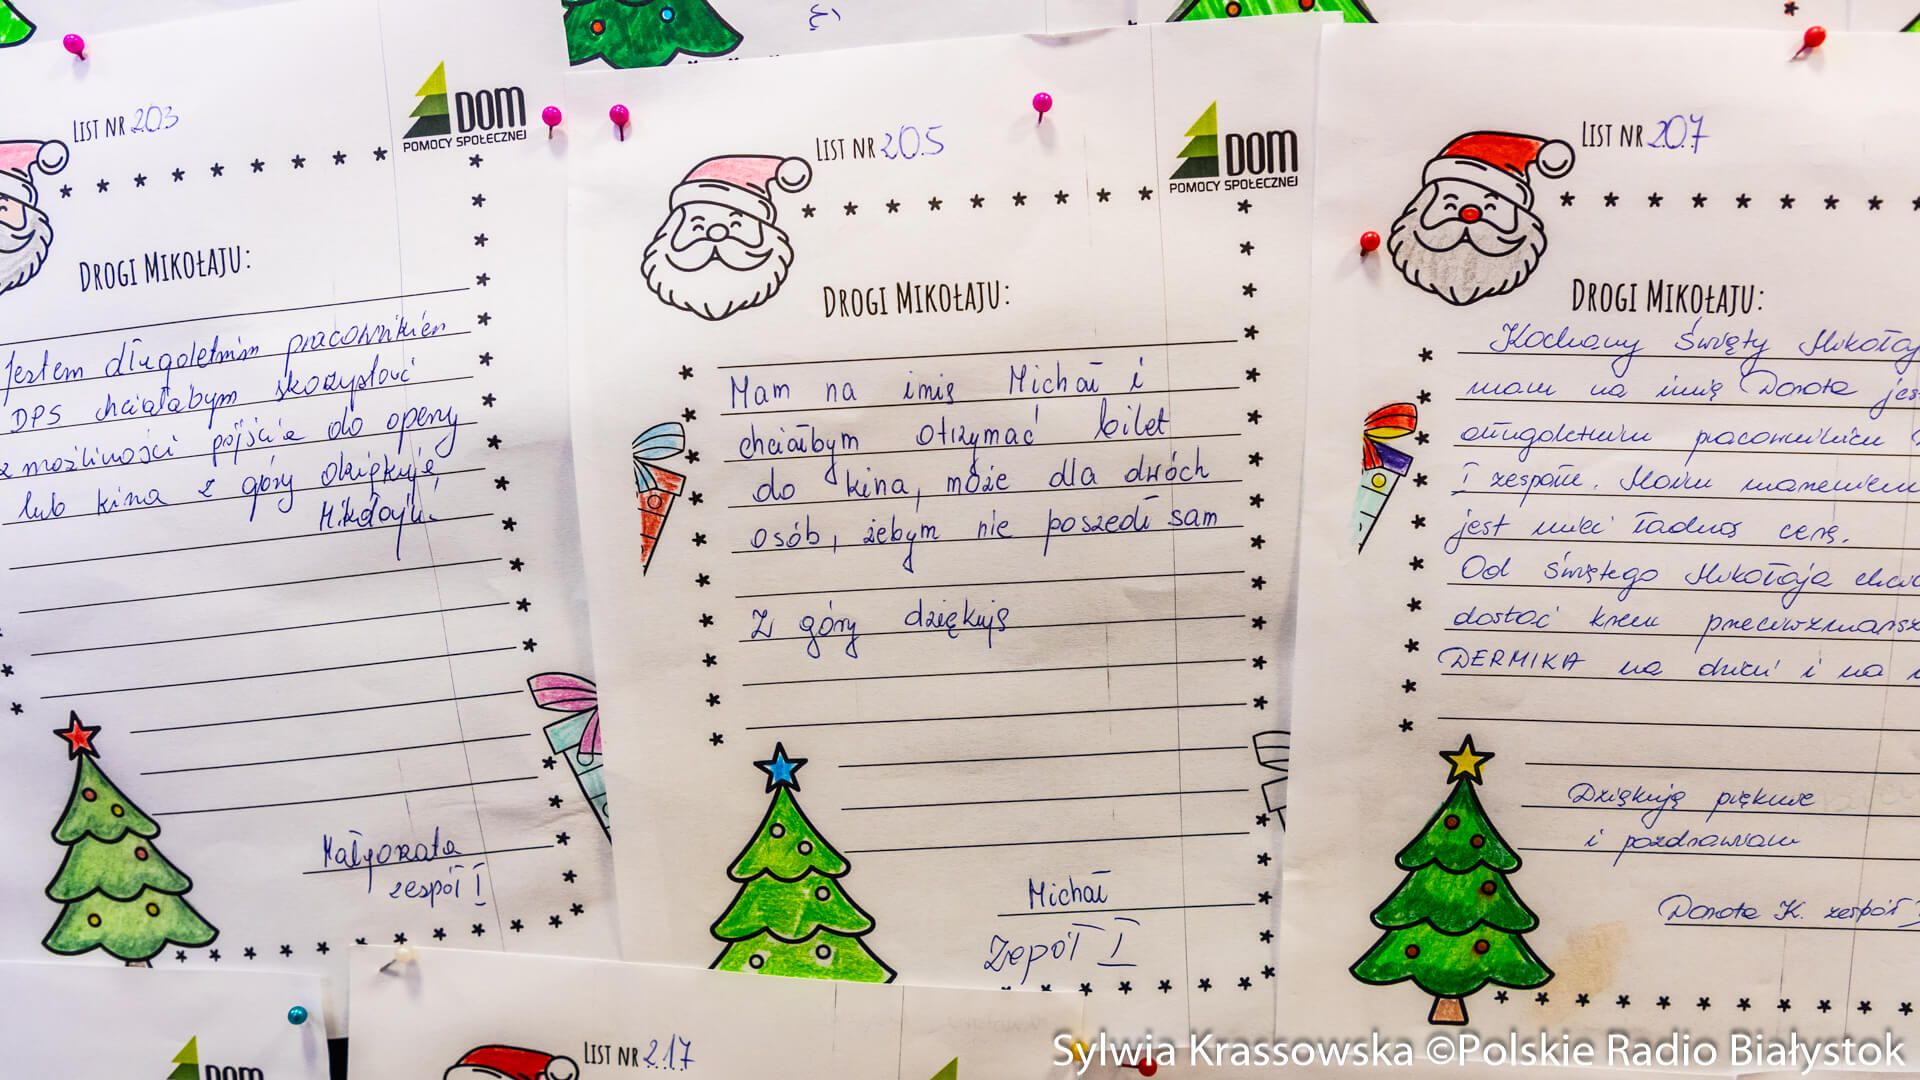 LIST NR 203
DOM
POMOCY SPOŁECZNEJ
DROGI MIKOŁAJU:
Jestem długoletnim pracownikiem
DPS chciałabym skorzystać
z możliwości pójścia do opery
lub kina z góry dziękuję
Mikołaju.
Małgorzata
zespół I
LIST NR 205
DOM
POMOCY SPOŁECZNEJ
DROGI MIKOŁAJU:
Mam na imię Michał i
chciałbym otrzymać bilet
do kina, może dla dwóch
osób, żebym nie poszedł sam
Z góry dziękuję
Michał
Zepół I
LIST NR 207
DROGI MIKOŁAJU:
Kochany Święty Mikołaj
mam na imię Dorota jes
długoletnim pracownikiem
I zespole. Moim marzeniem
jest mieć ładną cerę.
Od Świętego Mikołaja chcia
dostać krem przeciwzmarszcz
DERMIKA na dzień i na
Dziękuję pięknie
i pozdrawiam
Dorota K. zespół I
LIST NR 217
DOM
Sylwia Krassowska ©Polskie Radio Białystok